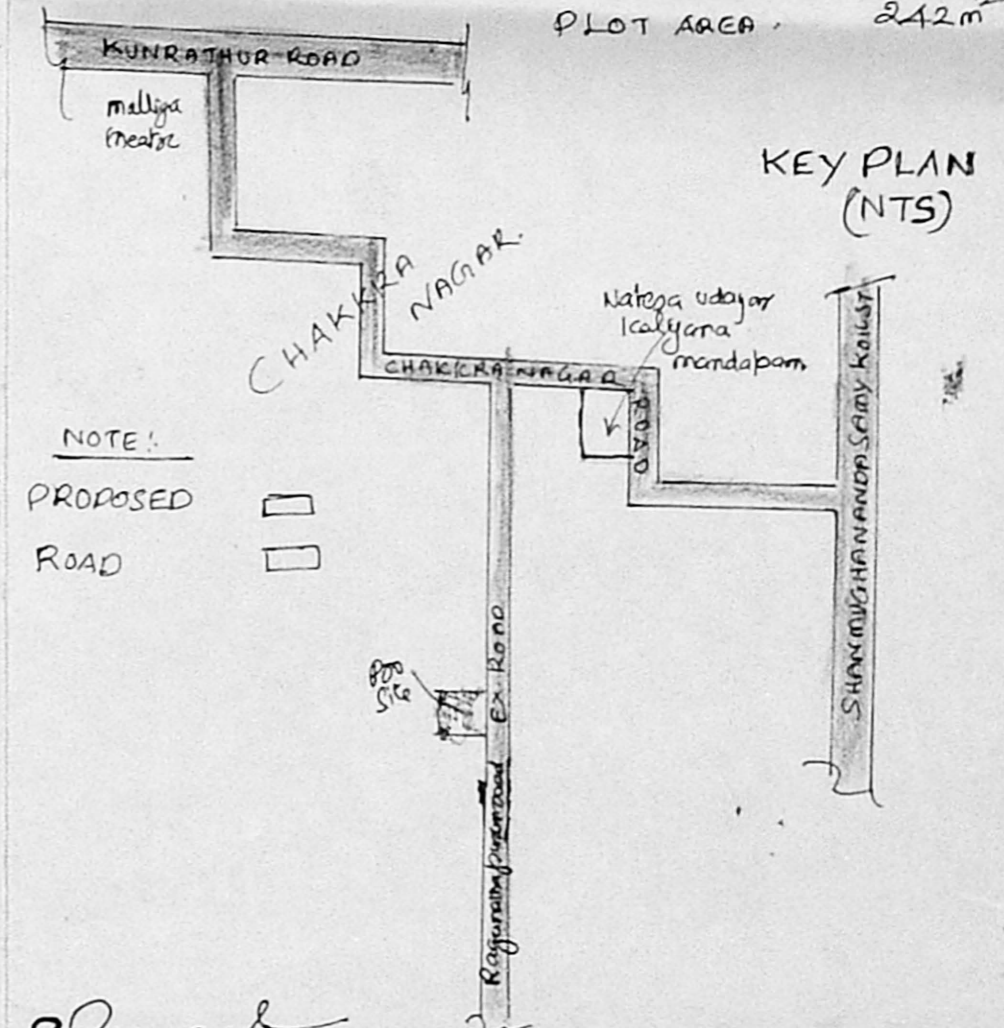 PLOT AREA 242m²
KUNRATHUR ROAD
malliga
theator
KEY PLAN
(NTS)
CHAKKRA
NAGAR.
Natesa udayar
kalyana
mandapam
CHAKKRA NAGAR
ROAD
SHANMUGHANANDASAMY KOIL ST
NOTE!
PROPOSED
ROAD
Site
Ex. ROAD